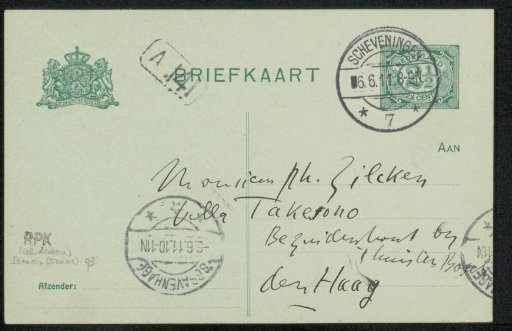 A 14
BRIEFKAART
SCHEVENINGEN
6.6.11.8-9N
7
2½
CENT
AAN
Monsieur Ph. Zilcken
Villa Takesono
Bezuidenhout by
't huis ten Bosch
den Haag
'S-GRAVENHAGE
6.6.11.10-11N
RPK
(coll. Zilcken)
Israëls (Isaac): 9
Afzender: